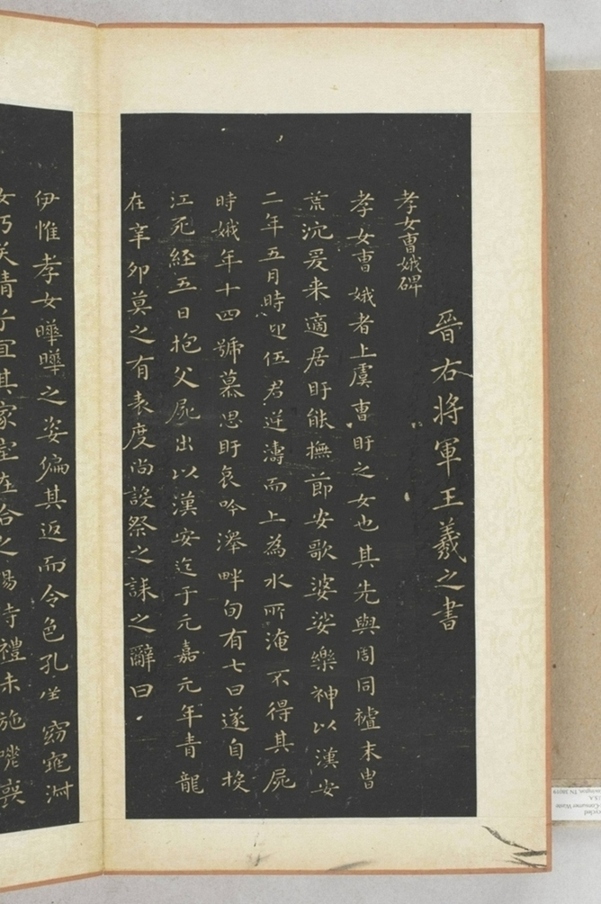 晉右將軍王羲之書
孝女曹娥碑
孝女曹娥者上虞曹盱之女也其先與周同末胄
荒沉爰来適居盱能撫節安歌婆娑樂神以漢安
二年五月時迎伍君逆濤而上為水所淹不得其屍
時娥年十四號慕思盱哀吟澤畔旬有七日遂自投
江死經五日抱父屍出以漢安迄于元嘉元年青龍
在辛卯莫之有表度尚設祭之誄之辭曰
伊惟孝女曄曄之姿偏其返而令色孔窈窕淑
女巧笑倩兮宜其家室在洽之陽待禮未施嗟喪